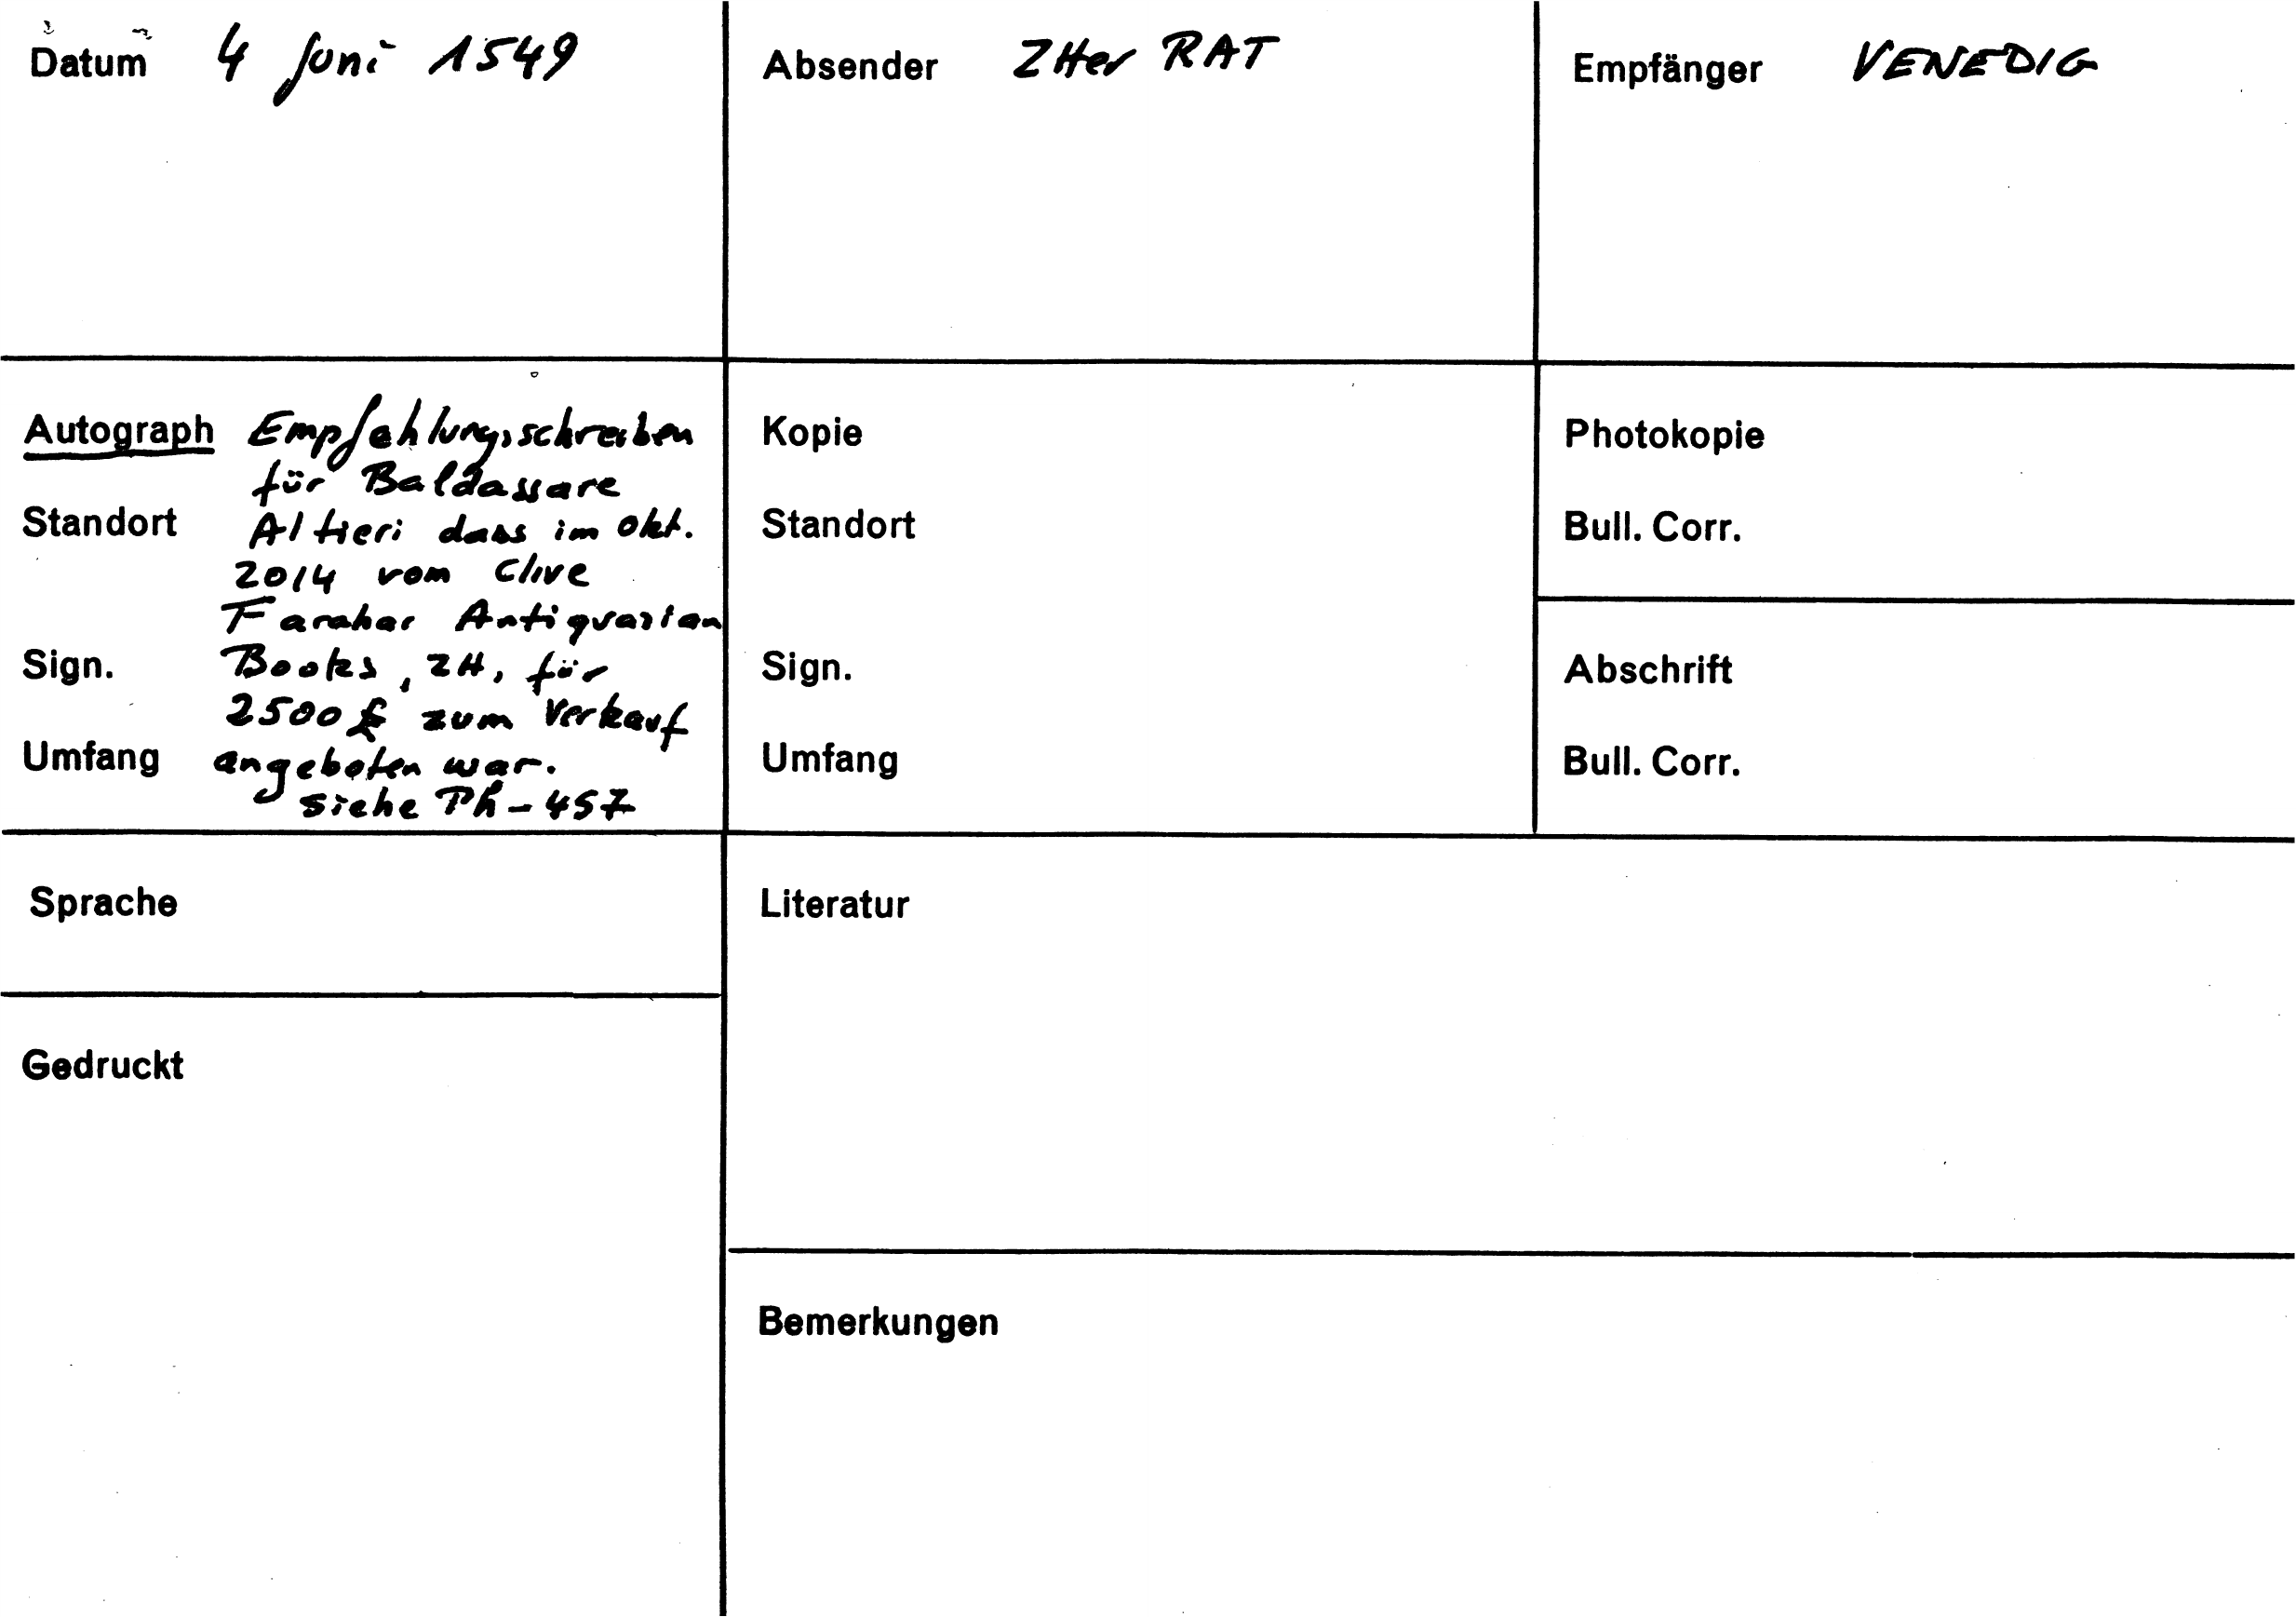 Datum 4 Juni 1549
Absender ZHer RAT
Empfänger VENEDIG
Autograph Empfehlungsschreiben
für Baldassare
Standort Altieri dass im Okt.
2014 vom Clive
Farahar Antiquarian
Sign. Books, ZH, für
2500 £ zum Verkauf
Umfang angeboten war.
siehe Ph-457
Kopie
Standort
Sign.
Umfang
Photokopie
Bull. Corr.
Abschrift
Bull. Corr.
Sprache
Literatur
Gedruckt
Bemerkungen